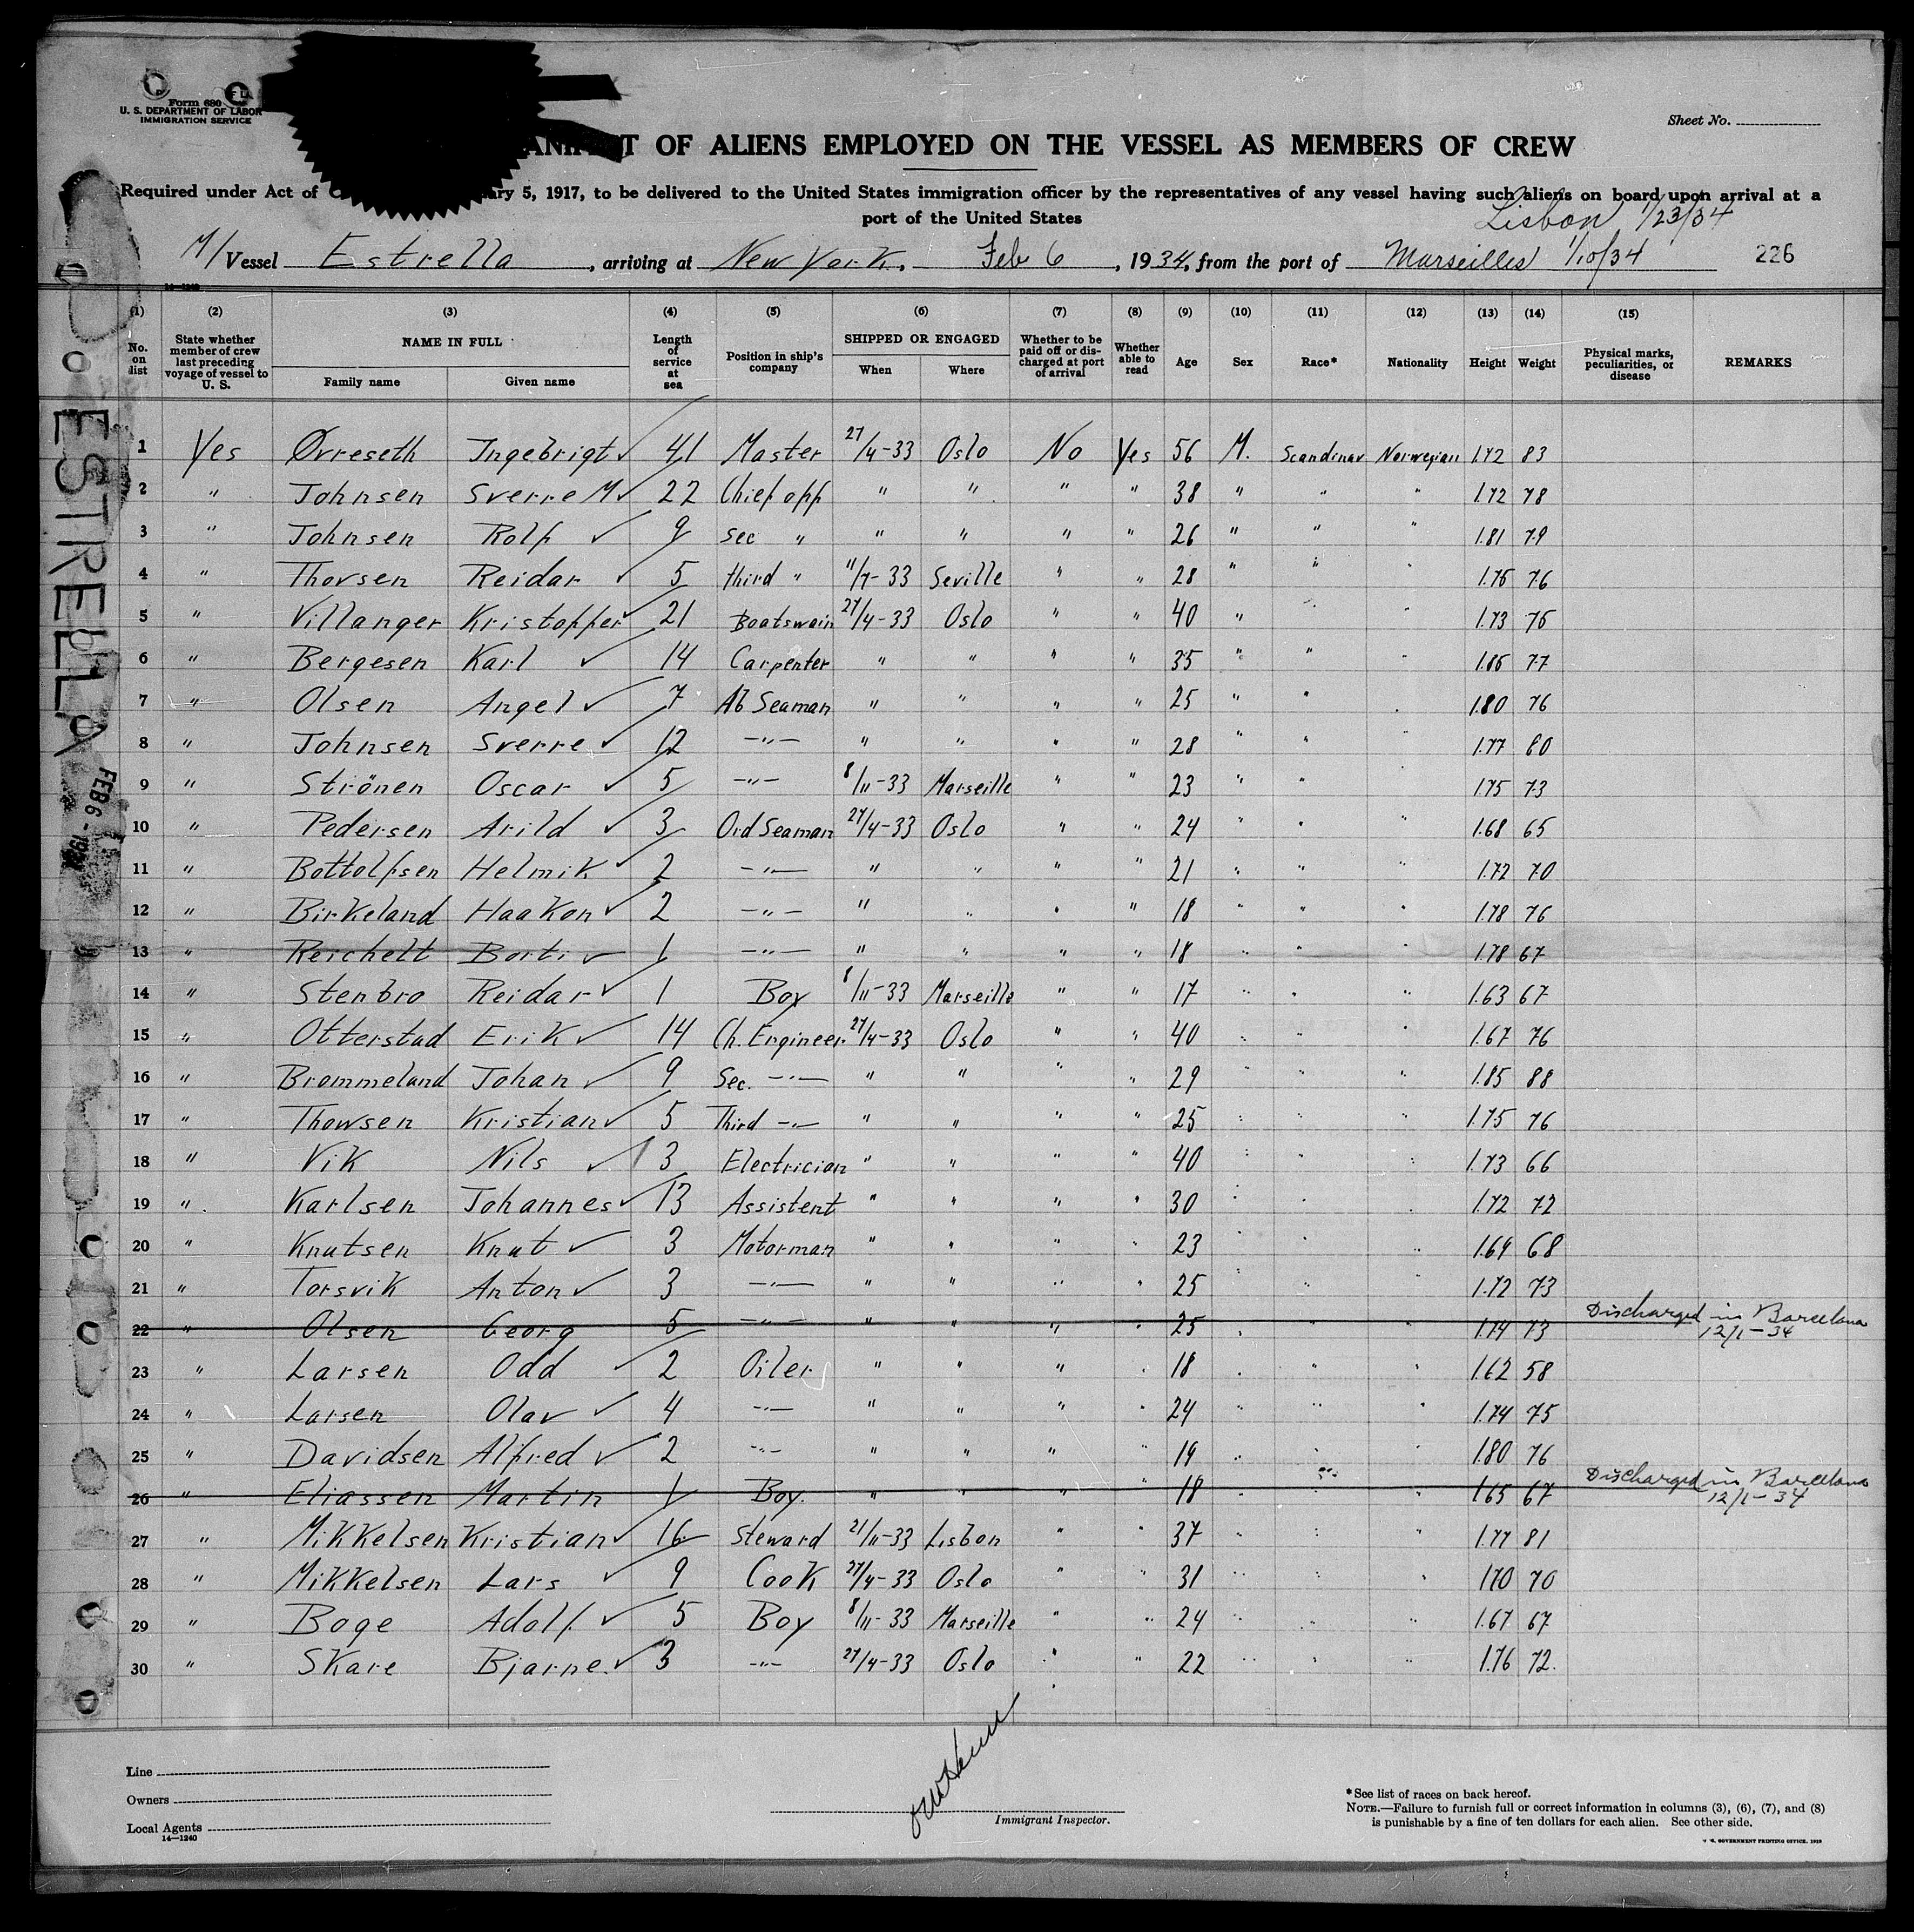 Form 680
U. S. DEPARTMENT OF LABOR
IMMIGRATION SERVICE
Sheet No.
OF ALIENS EMPLOYED ON THE VESSEL AS MEMBERS OF CREW
Required under Act of ary 5, 1917, to be delivered to the United States immigration officer by the representatives of any vessel having such aliens on board upon arrival at a
port of the United States
Lisbon 1/23/34
M/ Vessel Estrella, arriving at New York, Feb 6, 1934, from the port of Marseilles 1/10/34 226
14—1240
(1) (2) (3) (4) (5) (6) (7) (8) (9) (10) (11) (12) (13) (14) (15)
No. on list State whether member of crew last preceding voyage of vessel to U. S. NAME IN FULL Family name Given name Length of service at sea Position in ship's company SHIPPED OR ENGAGED When Where Whether to be paid off or discharged at port of arrival Whether able to read Age Sex Race* Nationality Height Weight Physical marks, peculiarities, or disease REMARKS
1 Yes Ørreseth Ingebrigt ✓ 41 Master 27/4-33 Oslo No Yes 56 M. Scandinav Norwegian 1.72 83
2 " Johnsen Sverre M ✓ 22 Chief off " " " " 38 " " " 1.72 78
3 " Johnsen Rolf ✓ 9 Sec " " " " " 26 " " " 1.81 79
4 " Thorsen Reidar ✓ 5 third " 11/7-33 Seville " " 28 " " " 1.75 76
5 " Villanger Kristoffer ✓ 21 Boatswain 27/4-33 Oslo " " 40 " " " 1.73 75
6 " Bergesen Karl ✓ 14 Carpenter " " " " 35 " " " 1.85 77
7 " Olsen Angel ✓ 7 Ab Seaman " " " " 25 " " " 1.80 76
8 " Johnsen Sverre ✓ 12 —"— " " " " 28 " " " 1.77 80
9 " Strönen Oscar ✓ 5 —"— 8/11-33 Marseille " " 23 " " " 1.75 73
10 " Pedersen Arild ✓ 3 Ord Seaman 27/4-33 Oslo " " 24 " " " 1.68 65
11 " Bottolfsen Helmik ✓ 2 —"— " " " " 21 " " " 1.72 70
12 " Birkeland Haakon ✓ 2 —"— " " " " 18 " " " 1.78 76
13 " Reichelt Borti ✓ 1 —"— " " " " 18 " " " 1.78 67
14 " Stenbro Reidar ✓ 1 Boy 8/11-33 Marseille " " 17 " " " 1.63 67
15 " Otterstad Erik ✓ 14 Ch. Engineer 27/4-33 Oslo " " 40 " " " 1.67 76
16 " Brommeland Johan ✓ 9 Sec. —"— " " " " 29 " " " 1.85 88
17 " Thowsen Kristian ✓ 5 Third —"— " " " " 25 " " " 1.75 76
18 " Vik Nils ✓ 3 Electrician " " " " 40 " " " 1.73 66
19 " Karlsen Johannes ✓ 13 Assistent " " " " 30 " " " 1.72 72
20 " Knutsen Knut ✓ 3 Motorman " " " " 23 " " " 1.69 68
21 " Torsvik Anton ✓ 3 —"— " " " " 25 " " " 1.72 73
22 " Olsen Georg 5 —"— " " " " 25 " " " 1.74 73 Discharged in Barcelona 12/1-34
23 " Larsen Odd ✓ 2 Oiler " " " " 18 " " " 1.62 58
24 " Larsen Olav ✓ 4 —"— " " " " 24 " " " 1.74 75
25 " Davidsen Alfred ✓ 2 —"— " " " " 19 " " " 1.80 76
26 " Eliassen Martin 1 Boy. " " " " 18 " " " 1.65 67 Discharged in Barcelona 12/1-34
27 " Mikkelsen Kristian ✓ 16 Steward 21/11-33 Lisbon " " 37 " " " 1.77 81
28 " Mikkelsen Lars ✓ 9 Cook 27/4-33 Oslo " " 31 " " " 170 70
29 " Boge Adolf. ✓ 5 Boy 8/11-33 Marseille " " 24 " " " 1.67 67
30 " Skare Bjarne. ✓ 3 —"— 27/4-33 Oslo " " 22 " " " 1.76 72.
ESTRELLA
FEB 6 - 1934
Line
Owners
Local Agents
14—1240
Immigrant Inspector.
*See list of races on back hereof.
NOTE.—Failure to furnish full or correct information in columns (3), (6), (7), and (8)
is punishable by a fine of ten dollars for each alien. See other side.
U. S. GOVERNMENT PRINTING OFFICE.